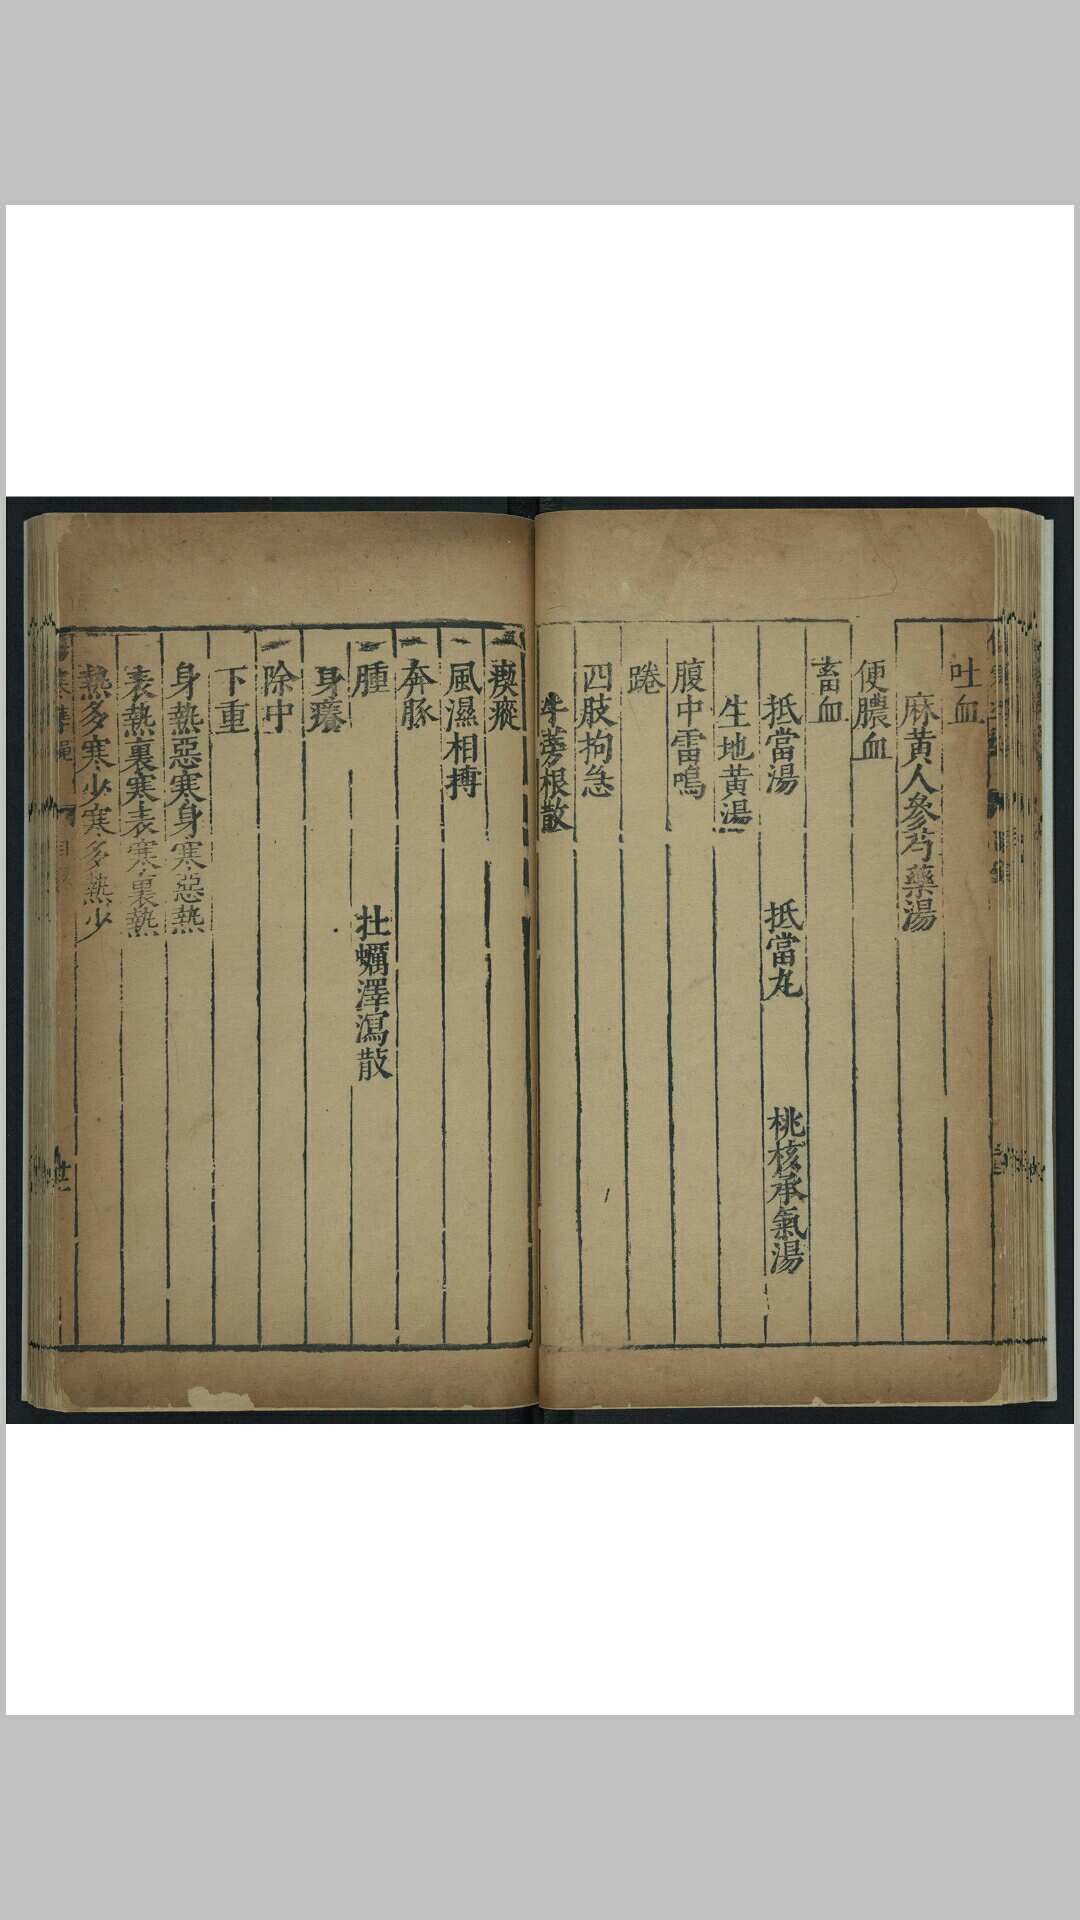 吐血
麻黃人參芍藥湯
便膿血
畜血
抵當湯　抵當丸　桃核承氣湯
生地黃湯
腹中雷鳴
踡
四肢拘急
牛蒡根散
瘈瘲
風濕相搏
奔豚
腫　牡蠣澤瀉散
身癢
除中
下重
身熱惡寒身寒惡熱
表熱裏寒表寒裏熱
熱多寒少寒多熱少